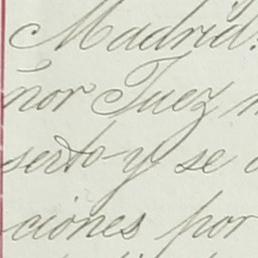 Madrid.
ñor Juez
serto y se
ciones por